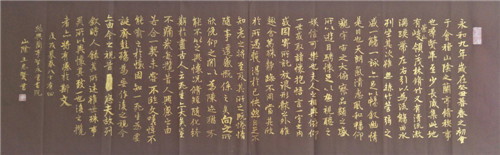 永和九年歲在癸丑暮春之初會
于會稽山陰之蘭亭脩稧事
也群賢畢至少長咸集此地
有峻領茂林脩竹又有清流激
湍暎帶左右引以為流觴曲水
列坐其次雖無絲竹管弦之
盛一觴一詠亦足以暢敘幽情
是日也天朗氣清惠風和暢仰
觀宇宙之大俯察品類之盛
所以遊目騁懷足以極視聽之
娛信可樂也夫人之相與俯仰
一世或取諸懷抱悟言一室之內
或因寄所託放浪形骸之外雖
趣舍萬殊靜躁不同當其欣
於所遇暫得於己快然自足不
知老之將至及其所之既惓情
隨事遷感慨係之矣向之所
欣俛仰之間以為陳迹猶不
能不以之興懷況脩短隨化終
期於盡古人云死生亦大矣豈
不痛哉每攬昔人興感之由
若合一契未嘗不臨文嗟悼不
能喻之於懷固知一死生為虛
誕齊彭殤為妄作後之視今
亦由今之視昔悲夫故列
敘時人錄其所述雖世殊事
異所以興懷其致一也後之攬
者亦將有感於斯文